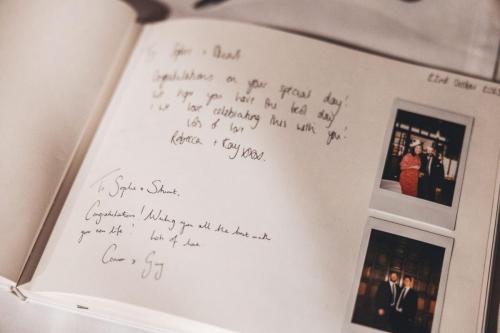 To Sophie + Stuart
22nd October 202
Congratulations on your special day!
We hope you have the best day
+ we love celebrating this with you!
Lots of love
Rebecca + Kay xoxo.
To Sophie + Stuart.
Congratulations! Wishing you all the best with
you life! Lots of love
Conor + Guy